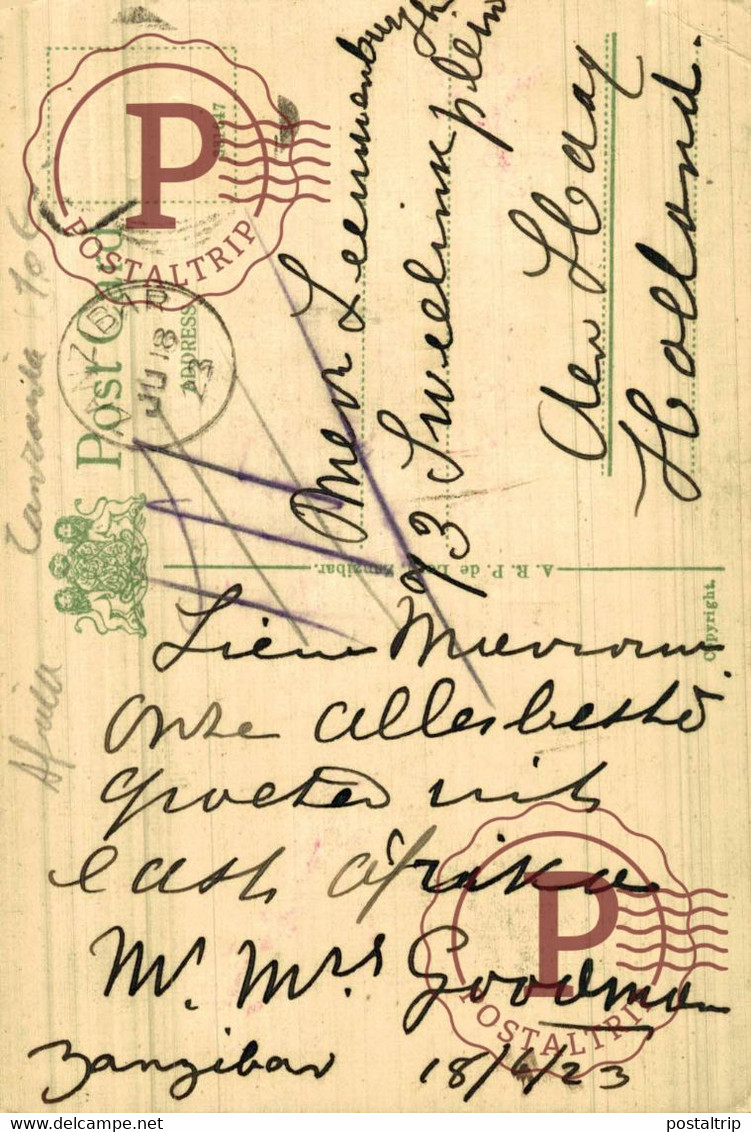 Post Card
ADDRESS
ZANZIBAR
JU 18
23
Mevr Leeuwenburgh
93 Sweelinkplein
den Haag
Holland.
A. R. P. de Lord, Zanzibar.
Copyright.
Lieve Mevrouw
onze allerbeste
groeten uit
East Afrika
Mr. Mrs Goodman
Zanzibar 18/6/23
Africa Tanzania
P
POSTALTRIP
P
POSTALTRIP
delcampe.net
postaltrip